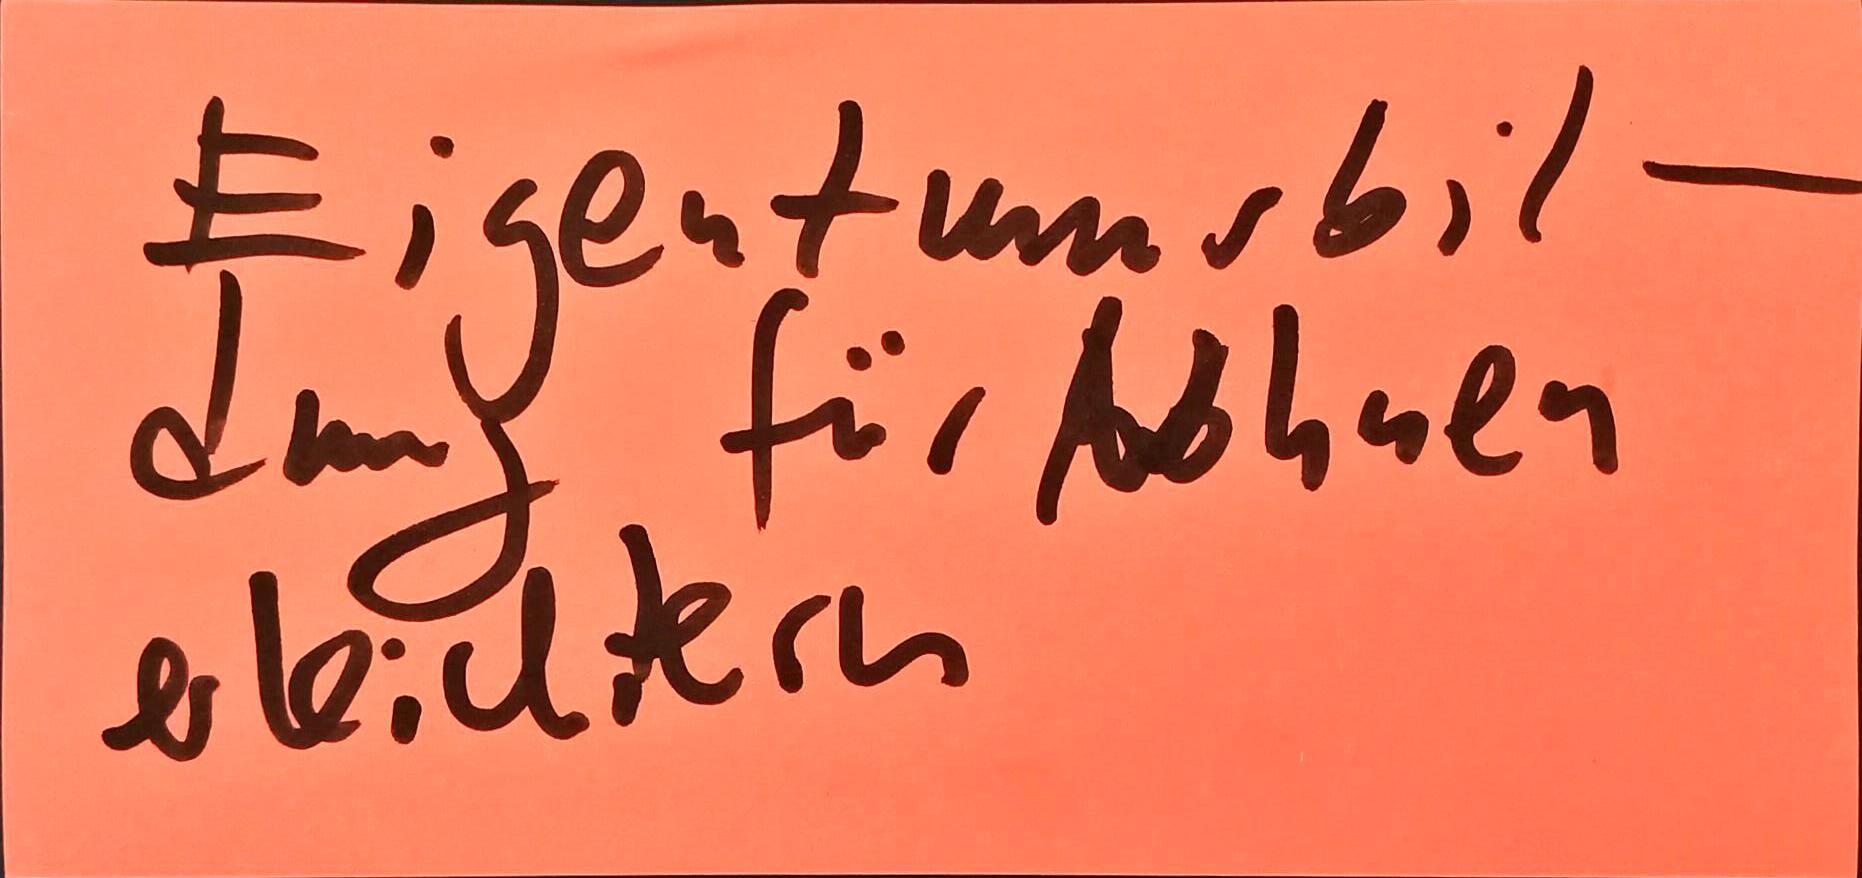 Eigentumsbil-
dung für Wohnen
erleichtern